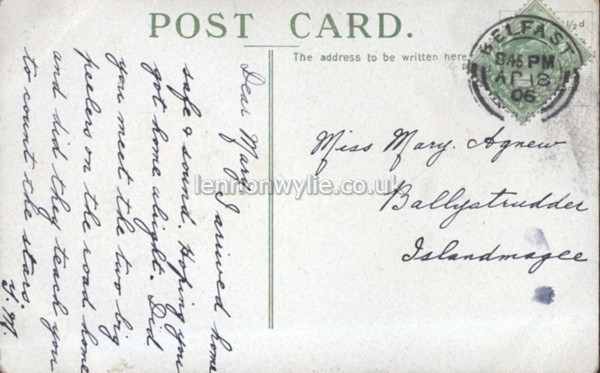 POST CARD.
The address to be written here
½d
BELFAST
8.45 PM
AP 18
06
Miss Mary. Agnew
Ballystrudder
Islandmagee
Dear Mary I arived home
safe & sound. Hoping you
got home alright. Did
you meet the two big
peelers on the road home
and did they teach you
to count the stars.
lennonwylie.co.uk